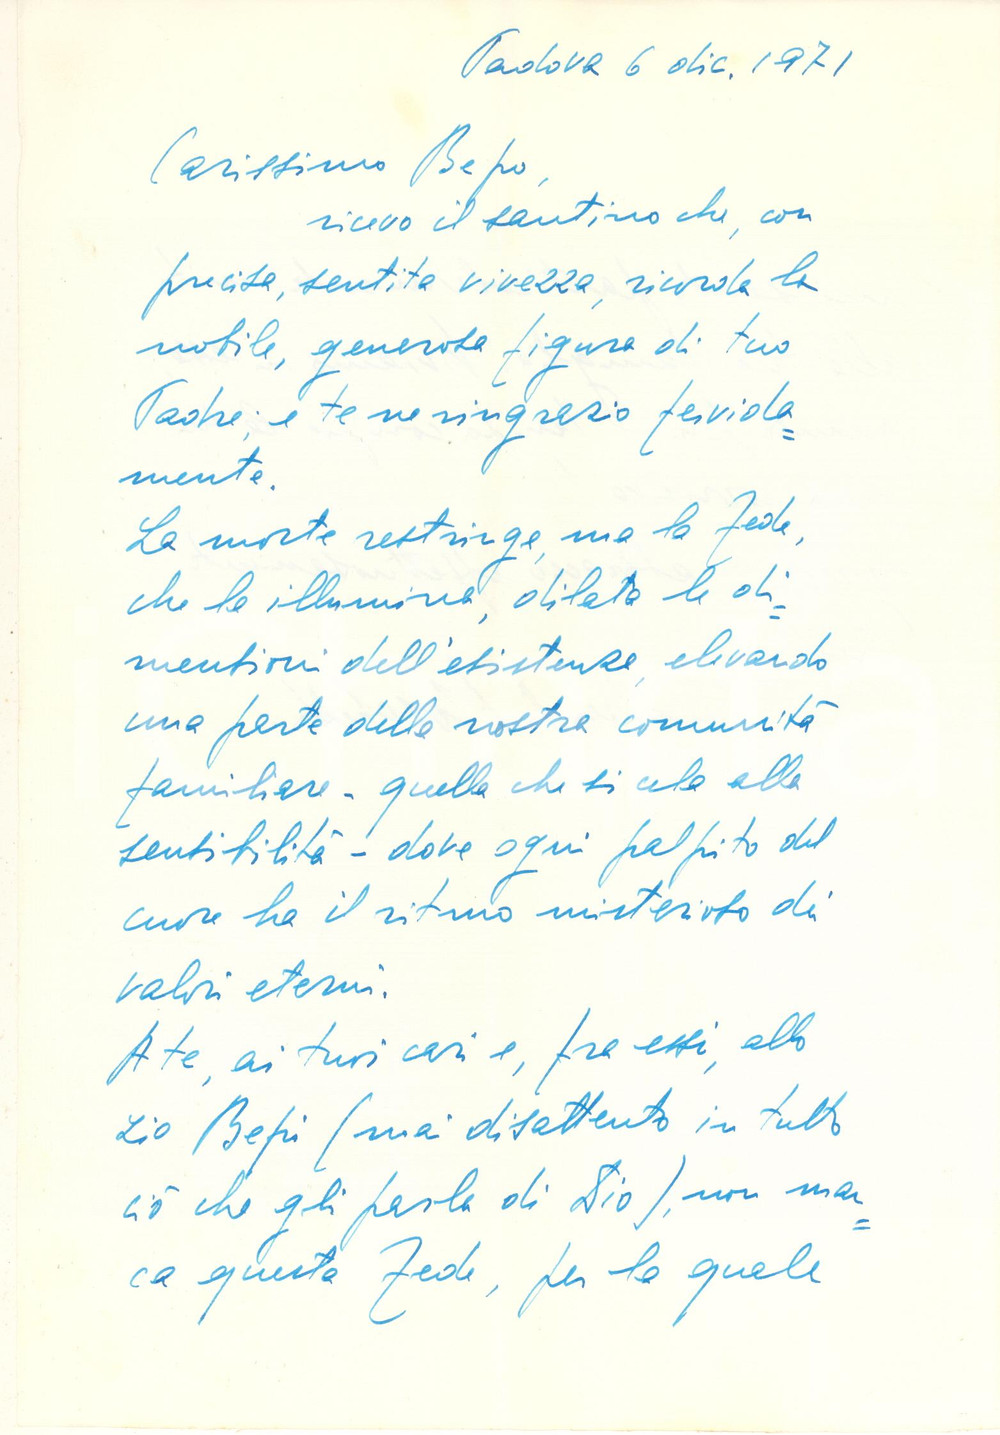 Padova 6 dic. 1971
Carissimo Bepo,
ricevo il santino che, con
precisa, sentita vivezza, ricorda la
nobile, generosa figura di tuo
Padre; e te ne ringrazio fervida=
mente.
La morte restringe, ma la Fede,
che la illumina, dilata le di=
mensioni dell'esistenza, elevando
una parte della nostra comunità
familiare - quella che si cela alla
sensibilità - dove ogni palpito del
cuore ha il ritmo misterioso dei
valori eterni.
A te, ai tuoi cari e, fra essi, allo
zio Bepi (mai disattento in tutto
ciò che gli parla di Dio), non man=
ca questa Fede, per la quale